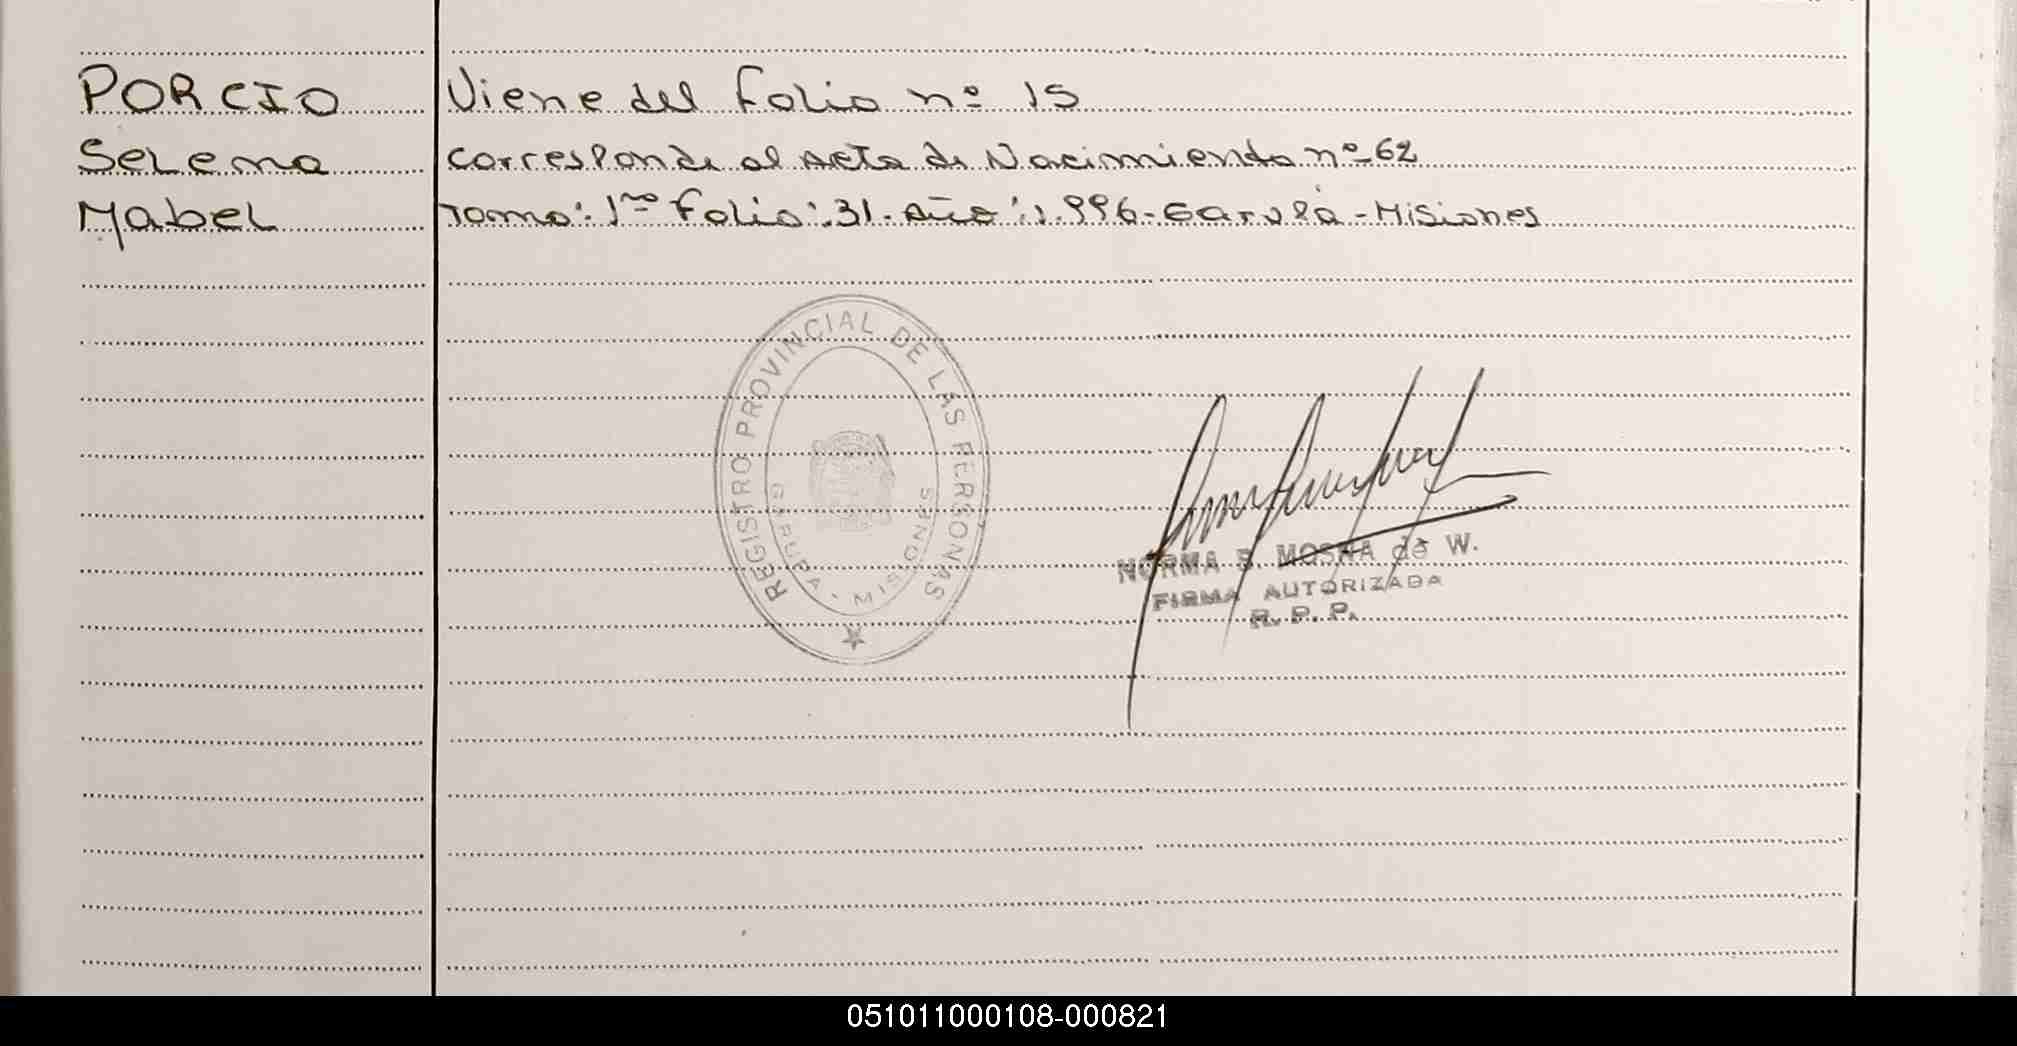 PORCIO
Selena
Mabel
Viene del Folio nº 15
corresponde al Acta de Nacimiento nº 62
Tomo: 1ro Folio: 31. Año: 1.996- Garupá - Misiones
REGISTRO PROVINCIAL DE LAS PERSONAS
GARUPA - MISIONES
NORMA B. MOSNA de W.
FIRMA AUTORIZADA
R. P. P.
051011000108-000821